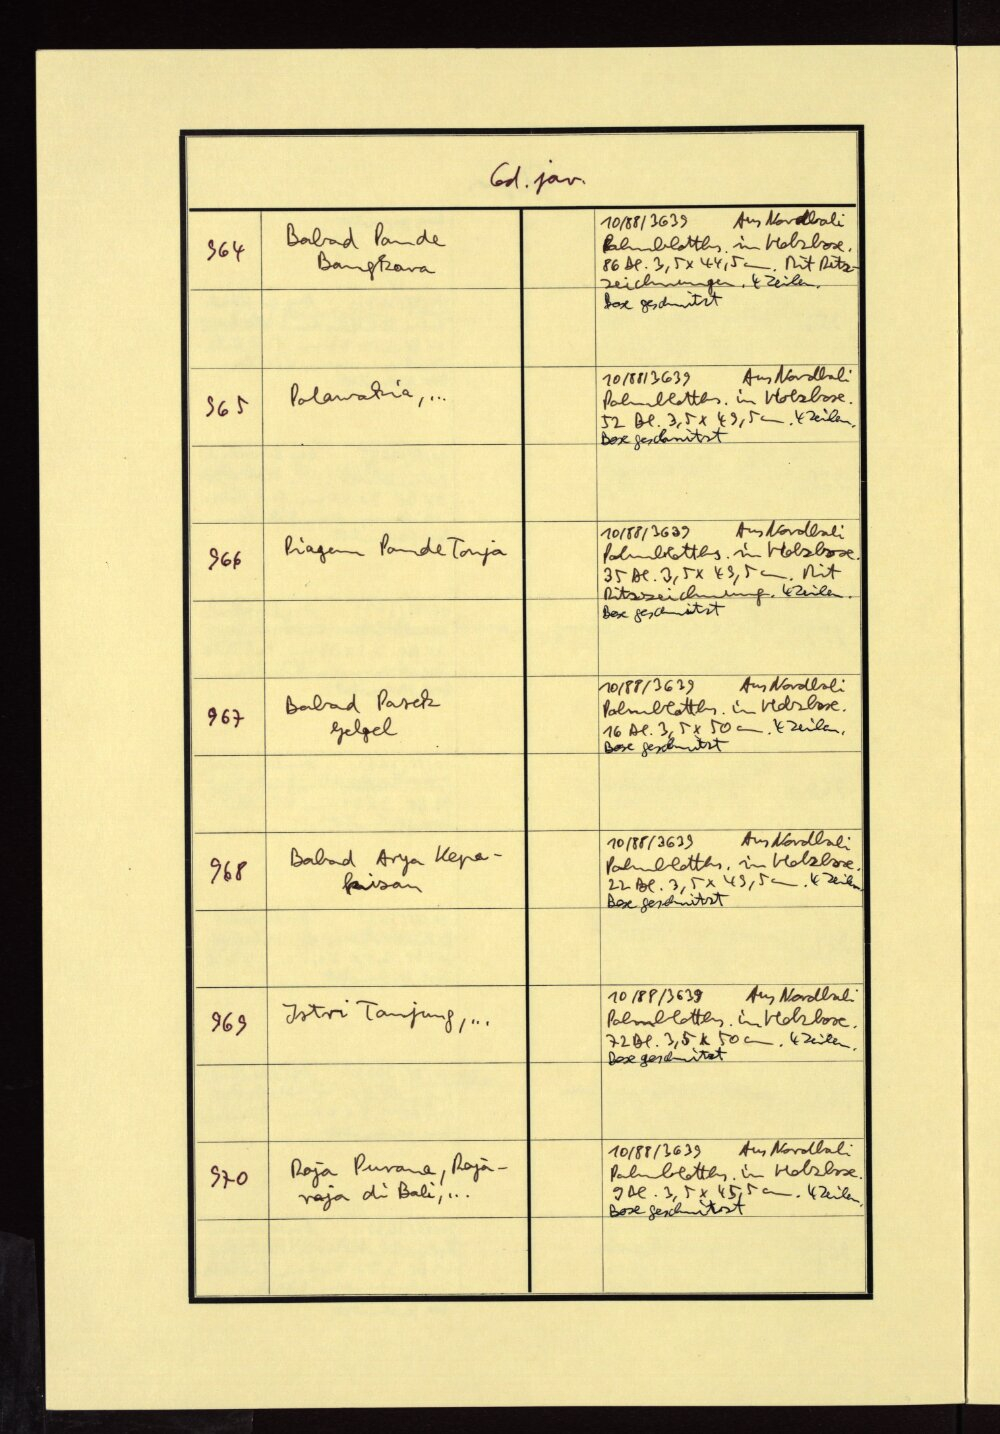 Cod. jav.
964
Babad Pande
Bangkara
10/88/3639 Aus Nordbali
Palmblatths. in Holzbox.
86 Bl. 3,5 x 44,5 cm. Mit Ritz-
zeichnungen. 4 Zeilen.
Box geschnitzt
965
Palawakia, ...
10/88/3639 Aus Nordbali
Palmblatths. in Holzbox.
52 Bl. 3,5 x 49,5 cm. 4 Zeilen.
Box geschnitzt
966
Piagem Pande Tonja
10/88/3639 Aus Nordbali
Palmblatths. in Holzbox.
35 Bl. 3,5 x 49,5 cm. Mit
Ritzzeichnung. 4 Zeilen.
Box geschnitzt
967
Babad Pasek
Gelgel
10/88/3639 Aus Nordbali
Palmblatths. in Holzbox.
16 Bl. 3,5 x 50 cm. 4 Zeilen.
Box geschnitzt
968
Babad Arya Kepa-
kisan
10/88/3639 Aus Nordbali
Palmblatths. in Holzbox.
22 Bl. 3,5 x 49,5 cm. 4 Zeilen
Box geschnitzt
969
Istri Tanjung, ...
10/88/3639 Aus Nordbali
Palmblatths. in Holzbox.
72 Bl. 3,5 x 50 cm. 4 Zeilen.
Box geschnitzt
970
Raja Purana, Raja-
raja di Bali, ...
10/88/3639 Aus Nordbali
Palmblatths. in Holzbox.
9 Bl. 3,5 x 45,5 cm. 4 Zeilen.
Box geschnitzt